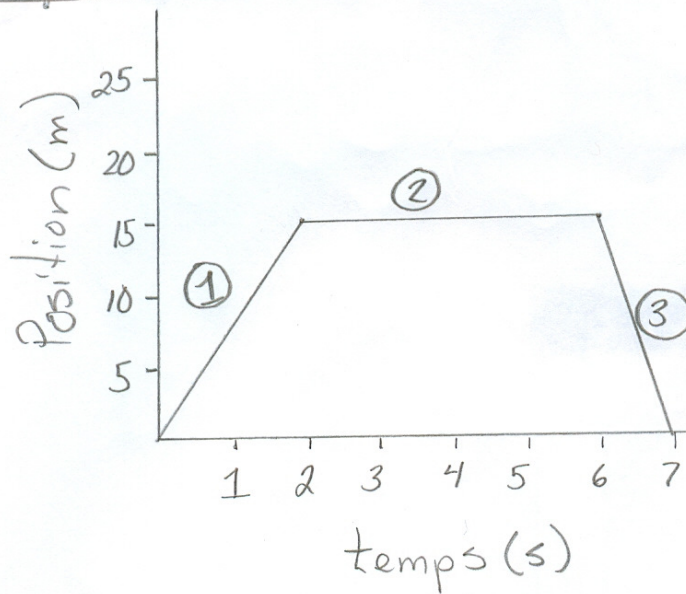 Position (m)
25
20
15
10
5
①
②
③
1 2 3 4 5 6 7
temps (s)